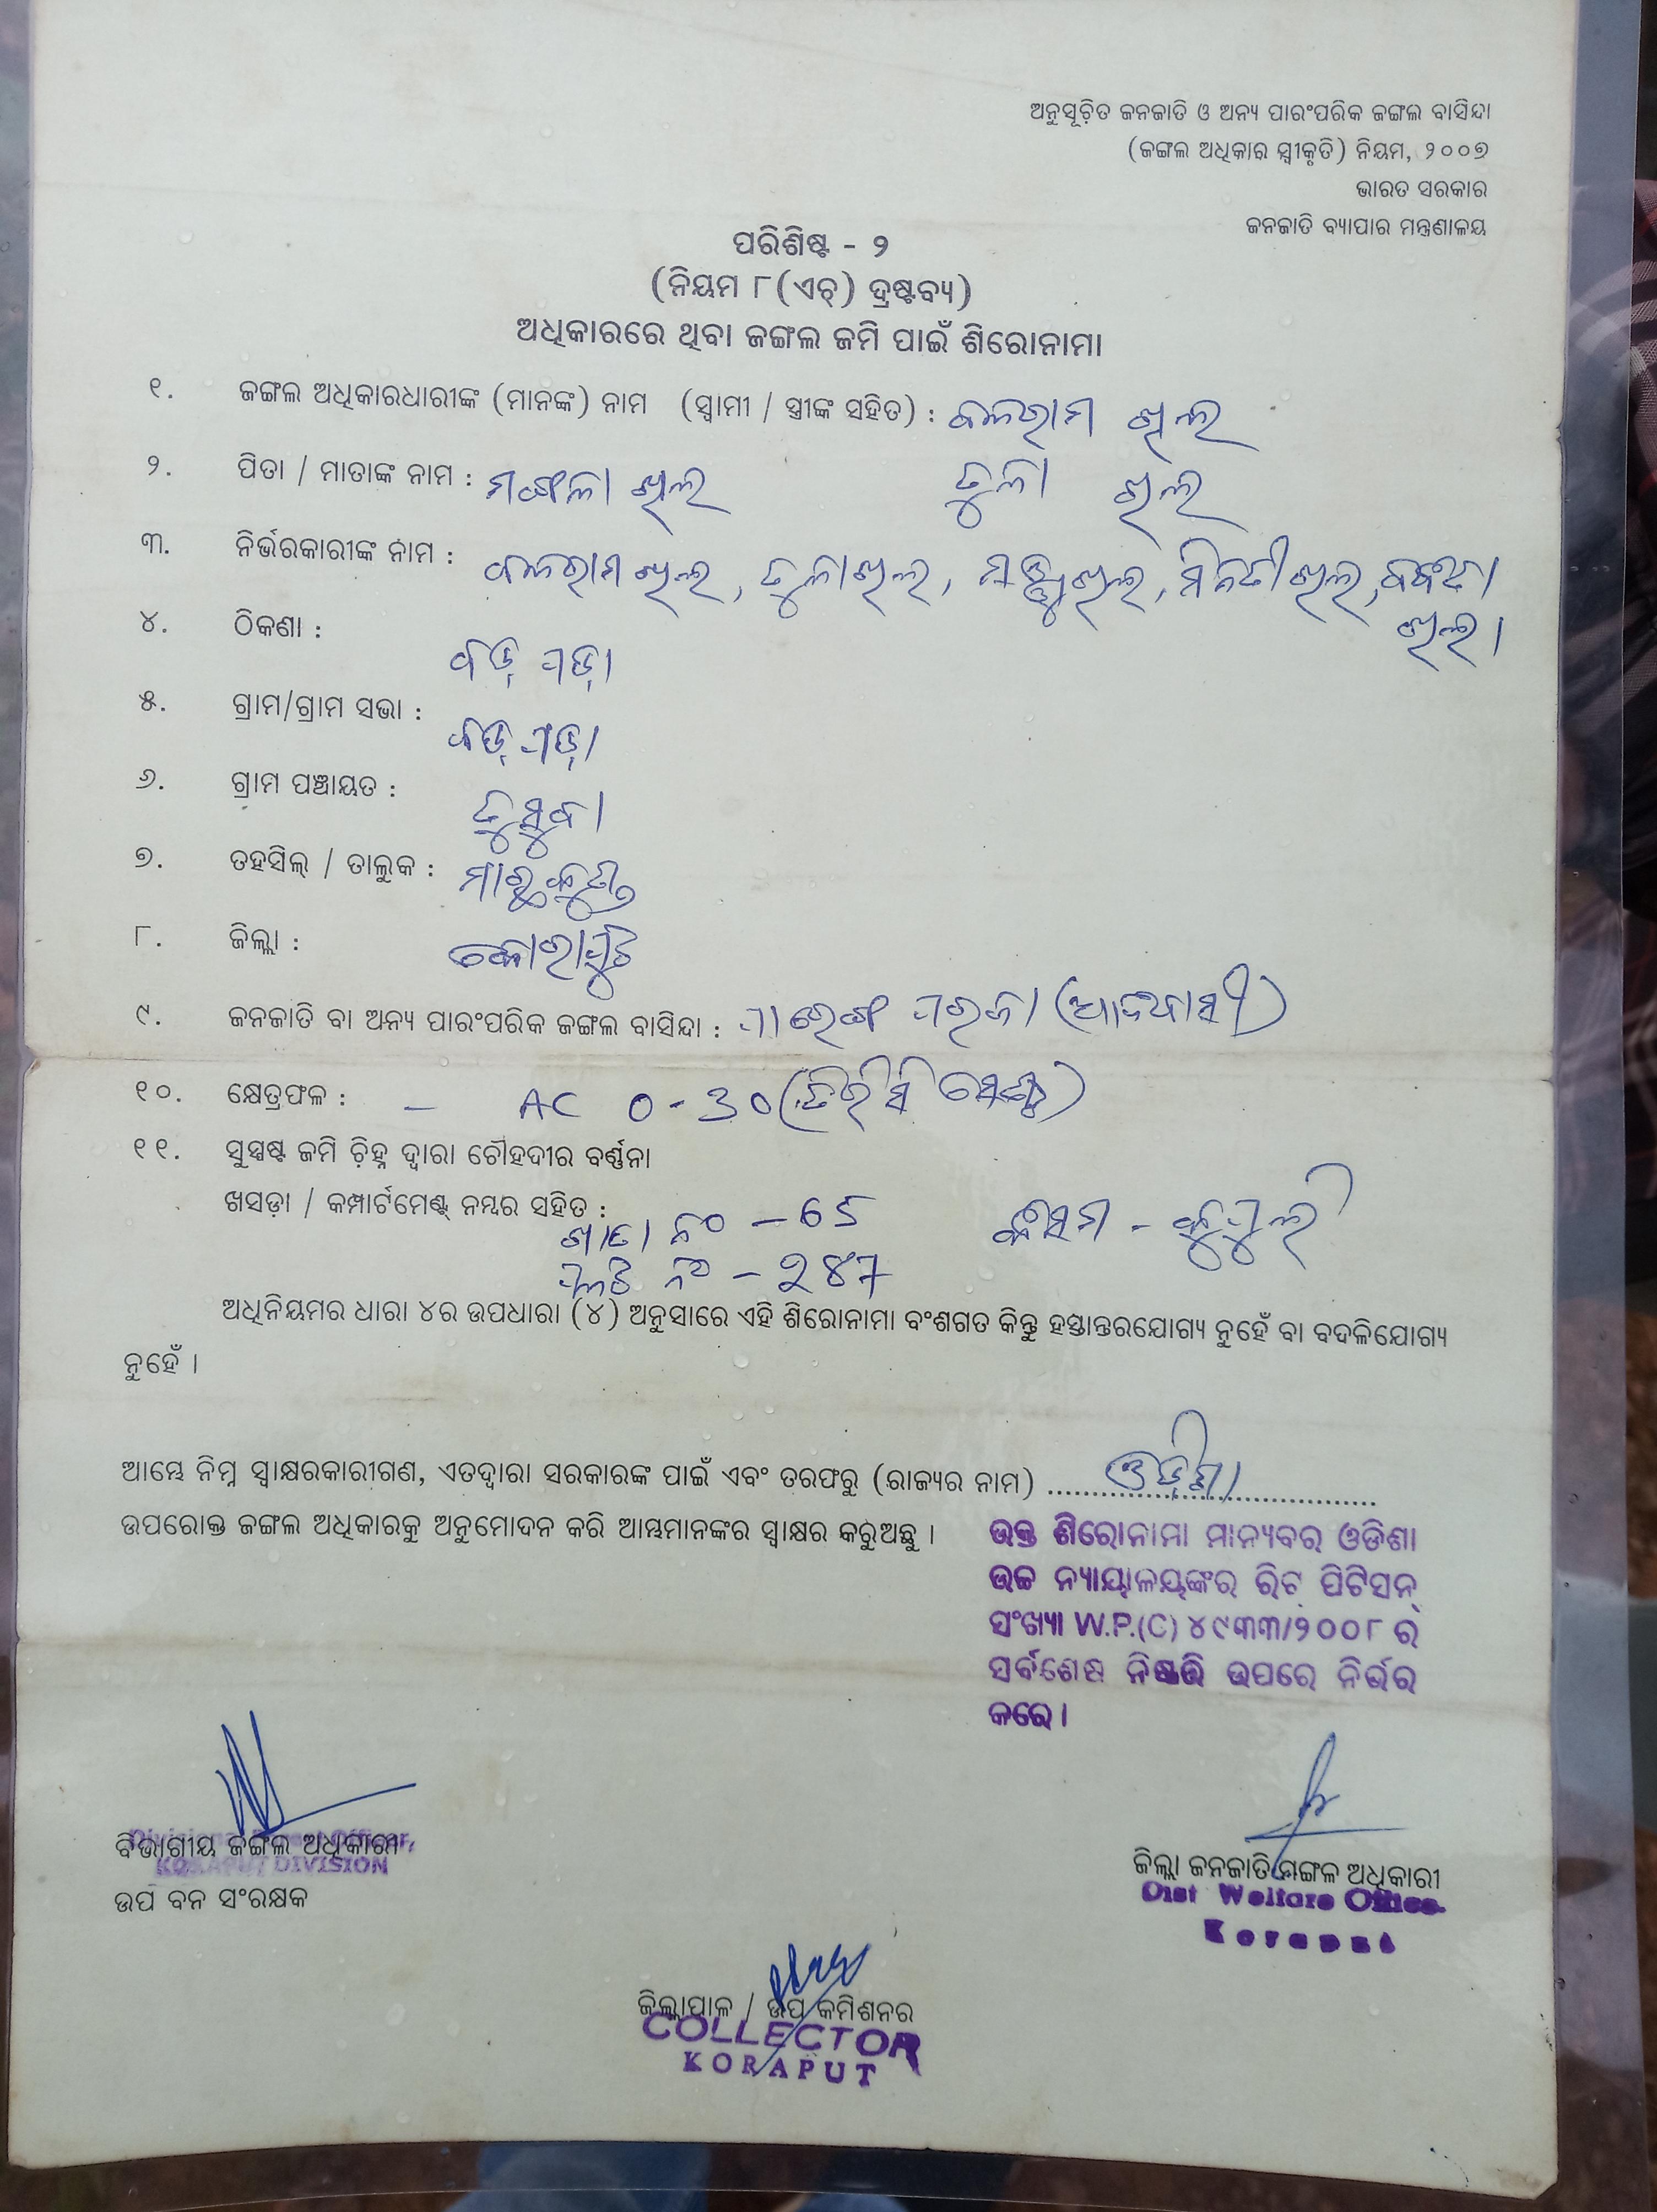 ଅନୁସୂଚିତ ଜନଜାତି ଓ ଅନ୍ୟ ପାରଂପରିକ ଜଙ୍ଗଲ ବାସିନ୍ଦା
(ଜଙ୍ଗଲ ଅଧିକାର ସ୍ୱୀକୃତି) ନିୟମ, ୨୦୦୭
ଭାରତ ସରକାର
ଜନଜାତି ବ୍ୟାପାର ମନ୍ତ୍ରଣାଳୟ
ପରିଶିଷ୍ଟ - ୨
(ନିୟମ ୮(ଏଚ୍) ଦ୍ରଷ୍ଟବ୍ୟ)
ଅଧିକାରରେ ଥିବା ଜଙ୍ଗଲ ଜମି ପାଇଁ ଶିରୋନାମା
୧. ଜଙ୍ଗଲ ଅଧିକାରଧାରୀଙ୍କ (ମାନଙ୍କ) ନାମ (ସ୍ୱାମୀ / ସ୍ତ୍ରୀଙ୍କ ସହିତ) : ବଳରାମ ଖିଲ
୨. ପିତା / ମାତାଙ୍କ ନାମ : ମଙ୍ଗଳା ଖିଲ ତୁଳା ଖିଲ
୩. ନିର୍ଭରକାରୀଙ୍କ ନାମ : ବଳରାମ ଖିଲ, ତୁଳା ଖିଲ, ଖିଲ, ମିନତୀ ଖିଲ,
ଖିଲ।
୪. ଠିକଣା : ବଡ଼ ପଡ଼ା
୫. ଗ୍ରାମ/ଗ୍ରାମ ସଭା : ବଡ଼ ପଡ଼ା
୬. ଗ୍ରାମ ପଞ୍ଚାୟତ :
୭. ତହସିଲ୍ / ତାଲୁକ : ମାଛକୁଣ୍ଡ
୮. ଜିଲ୍ଲା : କୋରାପୁଟ
୯. ଜନଜାତି ବା ଅନ୍ୟ ପାରଂପରିକ ଜଙ୍ଗଲ ବାସିନ୍ଦା : ପାରେଙ୍ଗ ପରଜା (ଆଦିବାସୀ)
୧୦. କ୍ଷେତ୍ରଫଳ : - AC 0-30 (ତିରିସି ସେଣ୍ଟ)
୧୧. ସୁସ୍ପଷ୍ଟ ଜମି ଚିହ୍ନ ଦ୍ୱାରା ଚୌହଦୀର ବର୍ଣ୍ଣନା
ଖସଡ଼ା / କମ୍ପାର୍ଟମେଣ୍ଟ୍ ନମ୍ବର ସହିତ :
ଖାତା ନଂ - 65 କିସମ - ଡୁଙ୍ଗୁରି
ପ୍ଲଟ ନଂ - 
ଅଧିନିୟମର ଧାରା ୪ର ଉପଧାରା (୪) ଅନୁସାରେ ଏହି ଶିରୋନାମା ବଂଶଗତ କିନ୍ତୁ ହସ୍ତାନ୍ତରଯୋଗ୍ୟ ନୁହେଁ ବା ବଦଳିଯୋଗ୍ୟ
ନୁହେଁ ।
ଆମ୍ଭେ ନିମ୍ନ ସ୍ୱାକ୍ଷରକାରୀଗଣ, ଏତଦ୍ୱାରା ସରକାରଙ୍କ ପାଇଁ ଏବଂ ତରଫରୁ (ରାଜ୍ୟର ନାମ) ଓଡ଼ିଶା
ଉପରୋକ୍ତ ଜଙ୍ଗଲ ଅଧିକାରକୁ ଅନୁମୋଦନ କରି ଆମ୍ଭମାନଙ୍କର ସ୍ୱାକ୍ଷର କରୁଅଛୁ ।
ଉକ୍ତ ଶିରୋନାମା ମାନ୍ୟବର ଓଡିଶା
ଉଚ୍ଚ ନ୍ୟାୟାଳୟଙ୍କର ରିଟ୍ ପିଟିସନ୍
ସଂଖ୍ୟା W.P.(C) ୪୯୩୩/୨୦୦୮ ର
ସର୍ବଶେଷ ନିଷ୍ପତ୍ତି ଉପରେ ନିର୍ଭର
କରେ।
ବିଭାଗୀୟ ଜଙ୍ଗଲ ଅଧିକାରୀ
Divisional Forest Officer,
KORAPUT DIVISION
ଉପ ବନ ସଂରକ୍ଷକ
ଜିଲ୍ଲା ଜନଜାତି ମଙ୍ଗଳ ଅଧିକାରୀ
Dist Welfare Officer
Koraput
ଜିଲ୍ଲାପାଳ / ଉପ କମିଶନର
COLLECTOR
KORAPUT